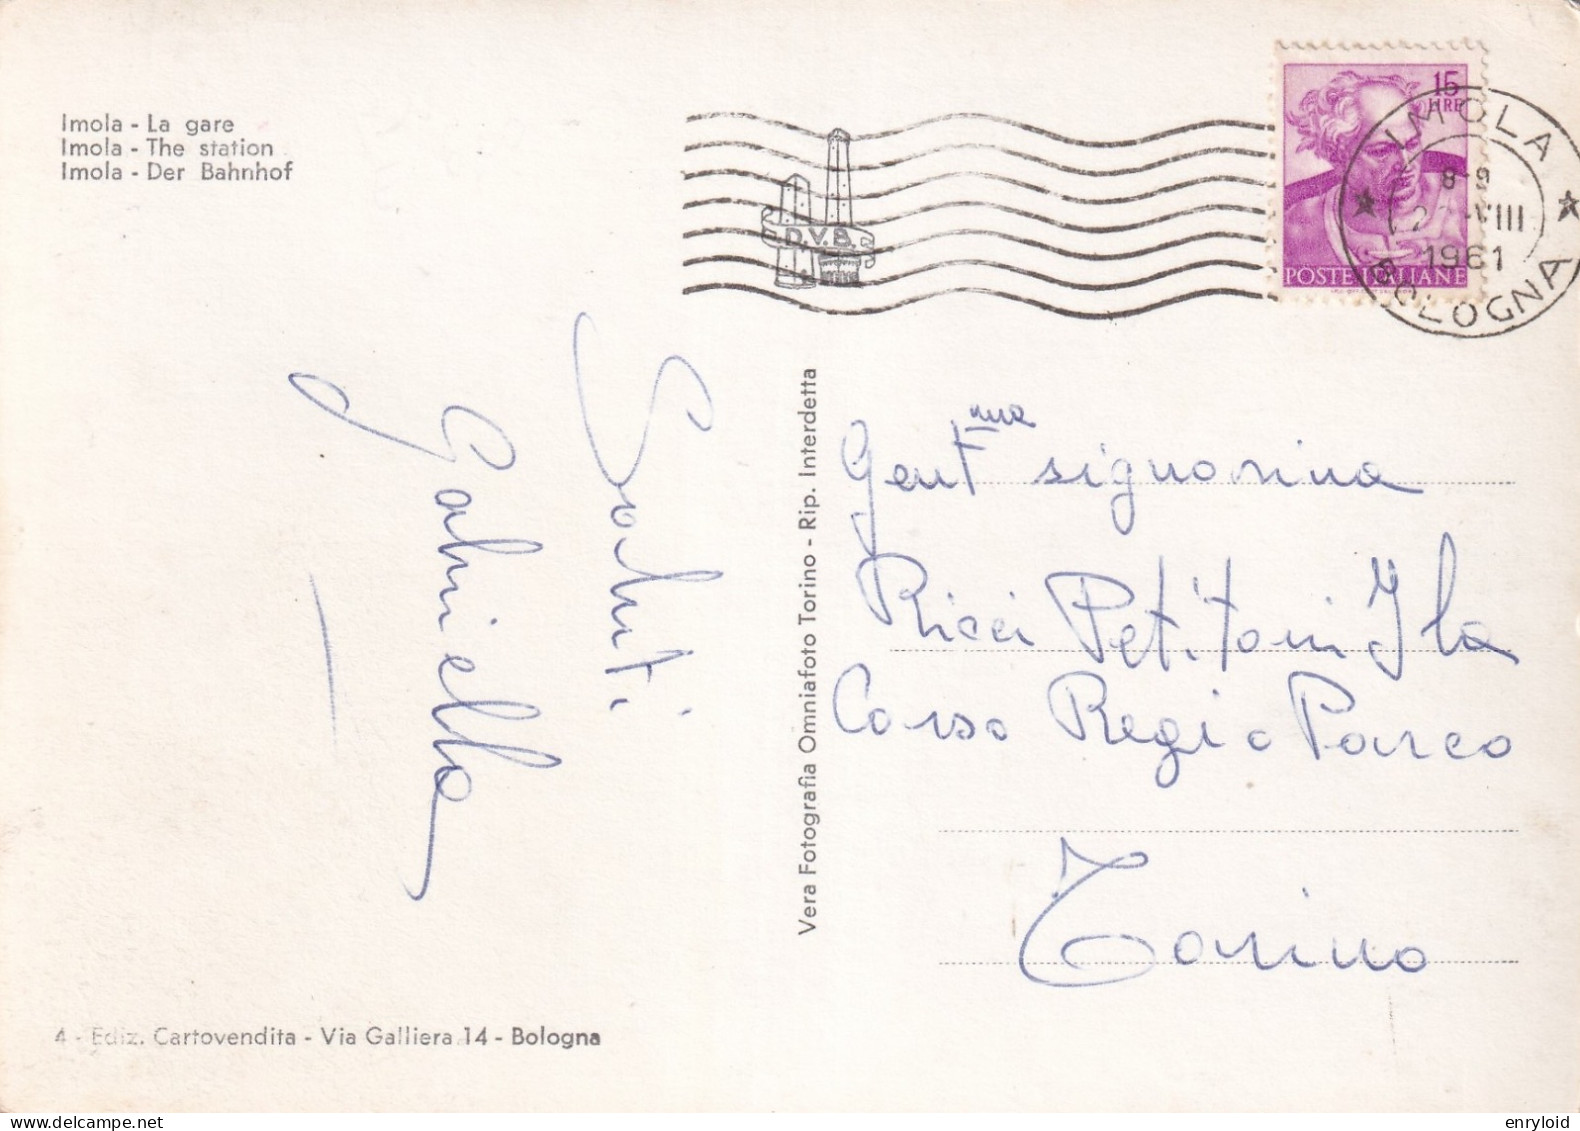 Imola - La gare
Imola - The station
Imola - Der Bahnhof
D.V.B.
15
LIRE
POSTE ITALIANE
IMOLA
8-9
VIII
1961
BOLOGNA
Saluti
Gabriella
Vera Fotografia Omniafoto Torino - Rip. Interdetta
Gent.ma signorina
Ricci Petitoni Ila
Corso Regio Parco
Torino
4 - Ediz. Cartovendita - Via Galliera 14 - Bologna
enryloid